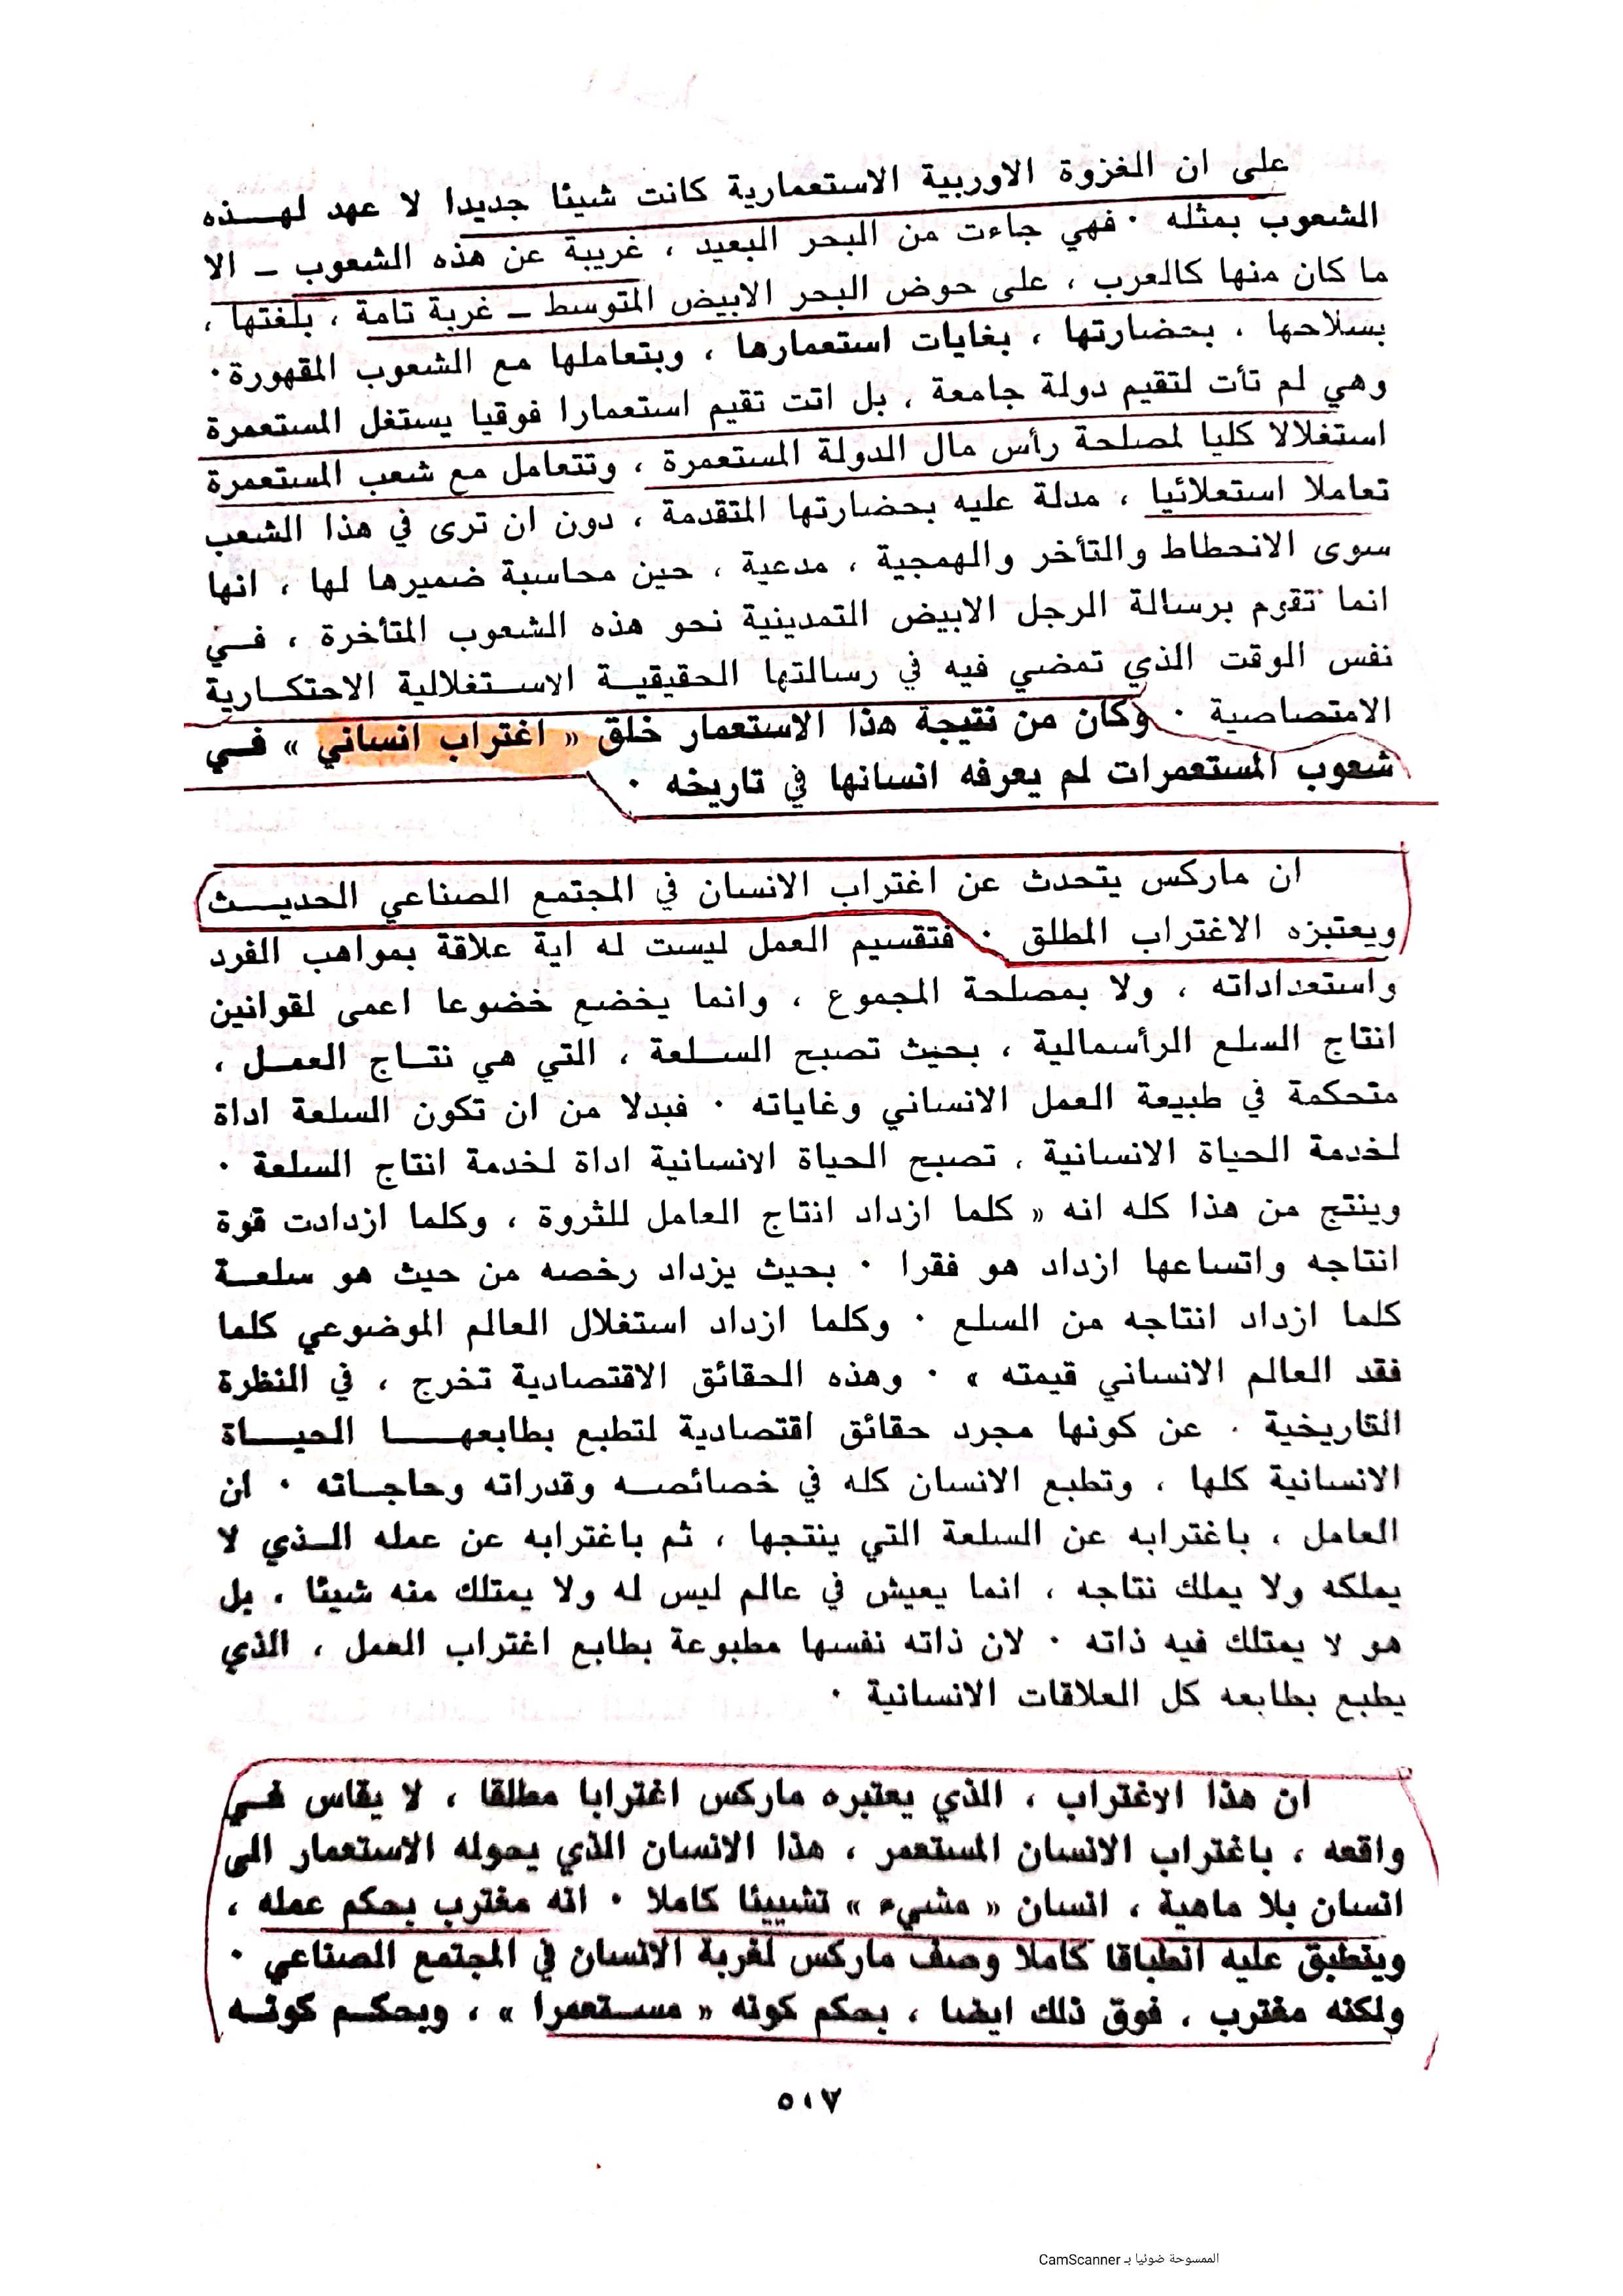 على ان الغزوة الاوربية الاستعمارية كانت شيئا جديدا لا عهد لهـــذه
الشعوب بمثله ٠ فهي جاءت من البحر البعيد ، غريبة عن هذه الشعوب ــ الا
ما كان منها كالعرب ، على حوض البحر الابيض المتوسط ــ غربة تامة ، بلغتها ،
بسلاحها ، بحضارتها ، بغايات استعمارها ، وبتعاملها مع الشعوب المقهورة ٠
وهي لم تأت لتقيم دولة جامعة ، بل اتت تقيم استعمارا فوقيا يستغل المستعمرة
استغلالا كليا لمصلحة رأس مال الدولة المستعمرة ، وتتعامل مع شعب المستعمرة
تعاملا استعلائيا ، مدلة عليه بحضارتها المتقدمة ، دون ان ترى في هذا الشعب
سوى الانحطاط والتأخر والهمجية ، مدعية ، حين محاسبة ضميرها لها ، انها
انما تقوم برسالة الرجل الابيض التمدينية نحو هذه الشعوب المتأخرة ، فــي
نفس الوقت الذي تمضي فيه في رسالتها الحقيقيــة الاســتغلالية الاحتكــارية
الامتصاصية ٠ وكان من نتيجة هذا الاستعمار خلق « اغتراب انساني » فــي
شعوب المستعمرات لم يعرفه انسانها في تاريخه ٠
ان ماركس يتحدث عن اغتراب الانسان في المجتمع الصناعي الحديـــث
ويعتبزه الاغتراب المطلق ٠ فتقسيم العمل ليست له اية علاقة بمواهب الفرد
واستعداداته ، ولا بمصلحة المجموع ، وانما يخضع خضوعا اعمى لقوانين
انتاج السلع الرأسمالية ، بحيث تصبح الســلعة ، التي هي نتــاج العمــل ،
متحكمة في طبيعة العمل الانساني وغاياته ٠ فبدلا من ان تكون السلعة اداة
لخدمة الحياة الانسانية ، تصبح الحياة الانسانية اداة لخدمة انتاج السلعة ٠
وينتج من هذا كله انه « كلما ازداد انتاج العامل للثروة ، وكلما ازدادت قوة
انتاجه واتساعها ازداد هو فقرا ٠ بحيث يزداد رخصه من حيث هو سلعــة
كلما ازداد انتاجه من السلع ٠ وكلما ازداد استغلال العالم الموضوعي كلما
فقد العالم الانساني قيمته » ٠ وهذه الحقائق الاقتصادية تخرج ، في النظرة
التاريخية ٠ عن كونها مجرد حقائق اقتصادية لتطبع بطابعهـــا الحيــاة
الانسانية كلها ، وتطبع الانسان كله في خصائصــه وقدراته وحاجــاته ٠ ان
العامل ، باغترابه عن السلعة التي ينتجها ، ثم باغترابه عن عمله الــذي لا
يملكه ولا يملك نتاجه ، انما يعيش في عالم ليس له ولا يمتلك منه شيئا ، بل
هو لا يمتلك فيه ذاته ٠ لان ذاته نفسها مطبوعة بطابع اغتراب العمل ، الذي
يطبع بطابعه كل العلاقات الانسانية ٠
ان هذا الاغتراب ، الذي يعتبره ماركس اغترابا مطلقا ، لا يقاس فــي
واقعه ، باغتراب الانسان المستعمر ، هذا الانسان الذي يحوله الاستعمار الى
انسان بلا ماهية ، انسان « مشيء » تشييئا كاملا ٠ انه مغترب بحكم عمله ،
وينطبق عليه انطباقا كاملا وصف ماركس لغربة الانسان في المجتمع الصناعي ٠
ولكنه مغترب ، فوق ذلك ايضا ، بحكم كونه « مســتعمرا » ، وبحكــم كونــه
٥١٧
الممسوحة ضوئيا بـ CamScanner